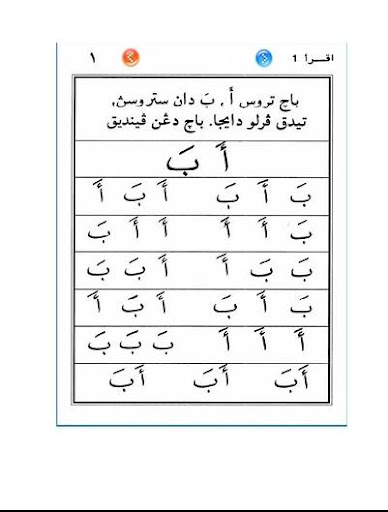 اقـرأ 1 ١
باچ تروس أَ ، بَ دان ستروسڽ،
تيدق ڤرلو دايجا. باچ دڠن ڤينديق
أَ بَ
بَ أَ بَ أَ بَ أَ
بَ أَ أَ أَ أَ بَ
بَ بَ أَ أَ بَ بَ
بَ أَ بَ أَ بَ أَ
أَ أَ أَ بَ بَ بَ
أَبَ أَبَ أَبَ